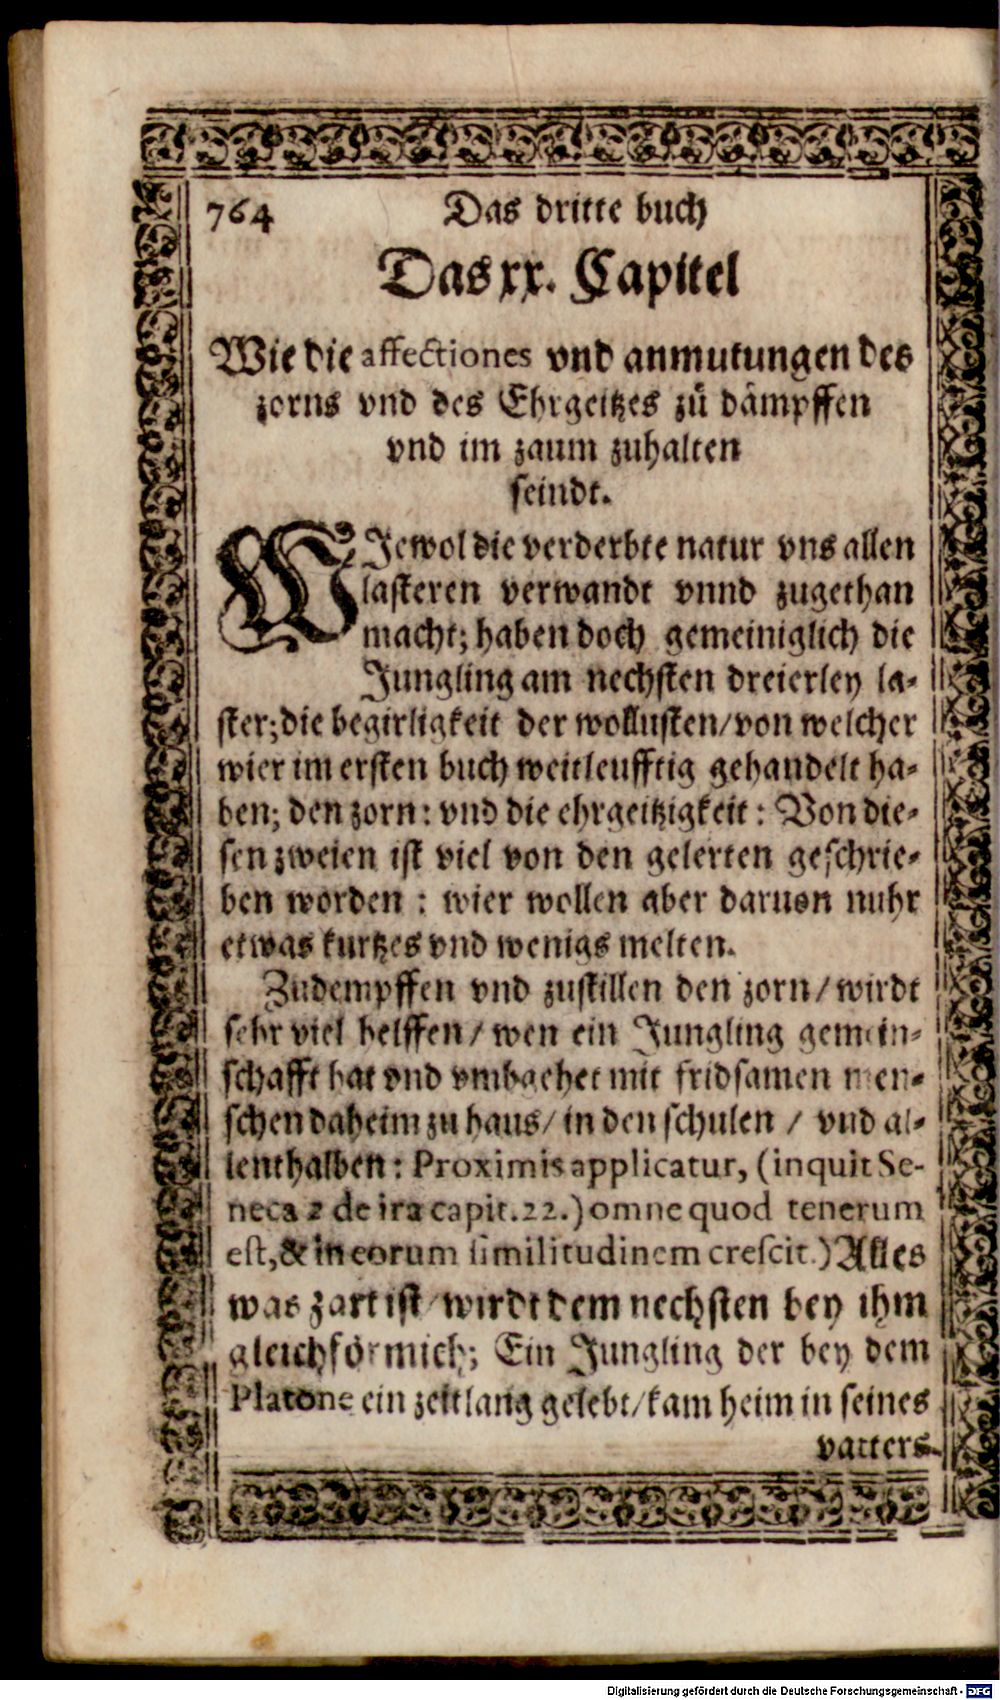 764 Das dritte buch
Das xx. Capitel
Wie die affectiones vnd anmutungen des
zorns vnd des Ehrgeitzes zů dämpffen
vnd im zaum zuhalten
seindt.
WJewol die verderbte natur vns allen
lasteren verwandt vnnd zugethan
macht; haben doch gemeiniglich die
Jungling am nechsten dreierley la-
ster; die begirligkeit der wollusten/ von welcher
wier im ersten buch weitleufftig gehandelt ha-
ben; den zorn: vnd die ehrgeitzigkeit: Von die-
sen zweien ist viel von den gelerten geschrie-
ben worden: wier wollen aber daruon nuhr
etwas kurtzes vnd wenigs melten.
Zudempffen vnd zustillen den zorn/ wirdt
sehr viel helffen/ wen ein Jungling gemein-
schafft hat vnd vmbgehet mit fridsamen men-
schen daheim zu haus/ in den schulen / vnd al-
lenthalben: Proximis applicatur, (inquit Se-
neca 2 de ira capit. 22.) omne quod tenerum
est, & in eorum similitudinem crescit.) Alles
was zart ist/ wirdt dem nechsten bey ihm
gleichförmich; Ein Jungling der bey dem
Platone ein zeitlang gelebt/ kam heim in seines
vatters
Digitalisierung gefördert durch die Deutsche Forschungsgemeinschaft - DFG